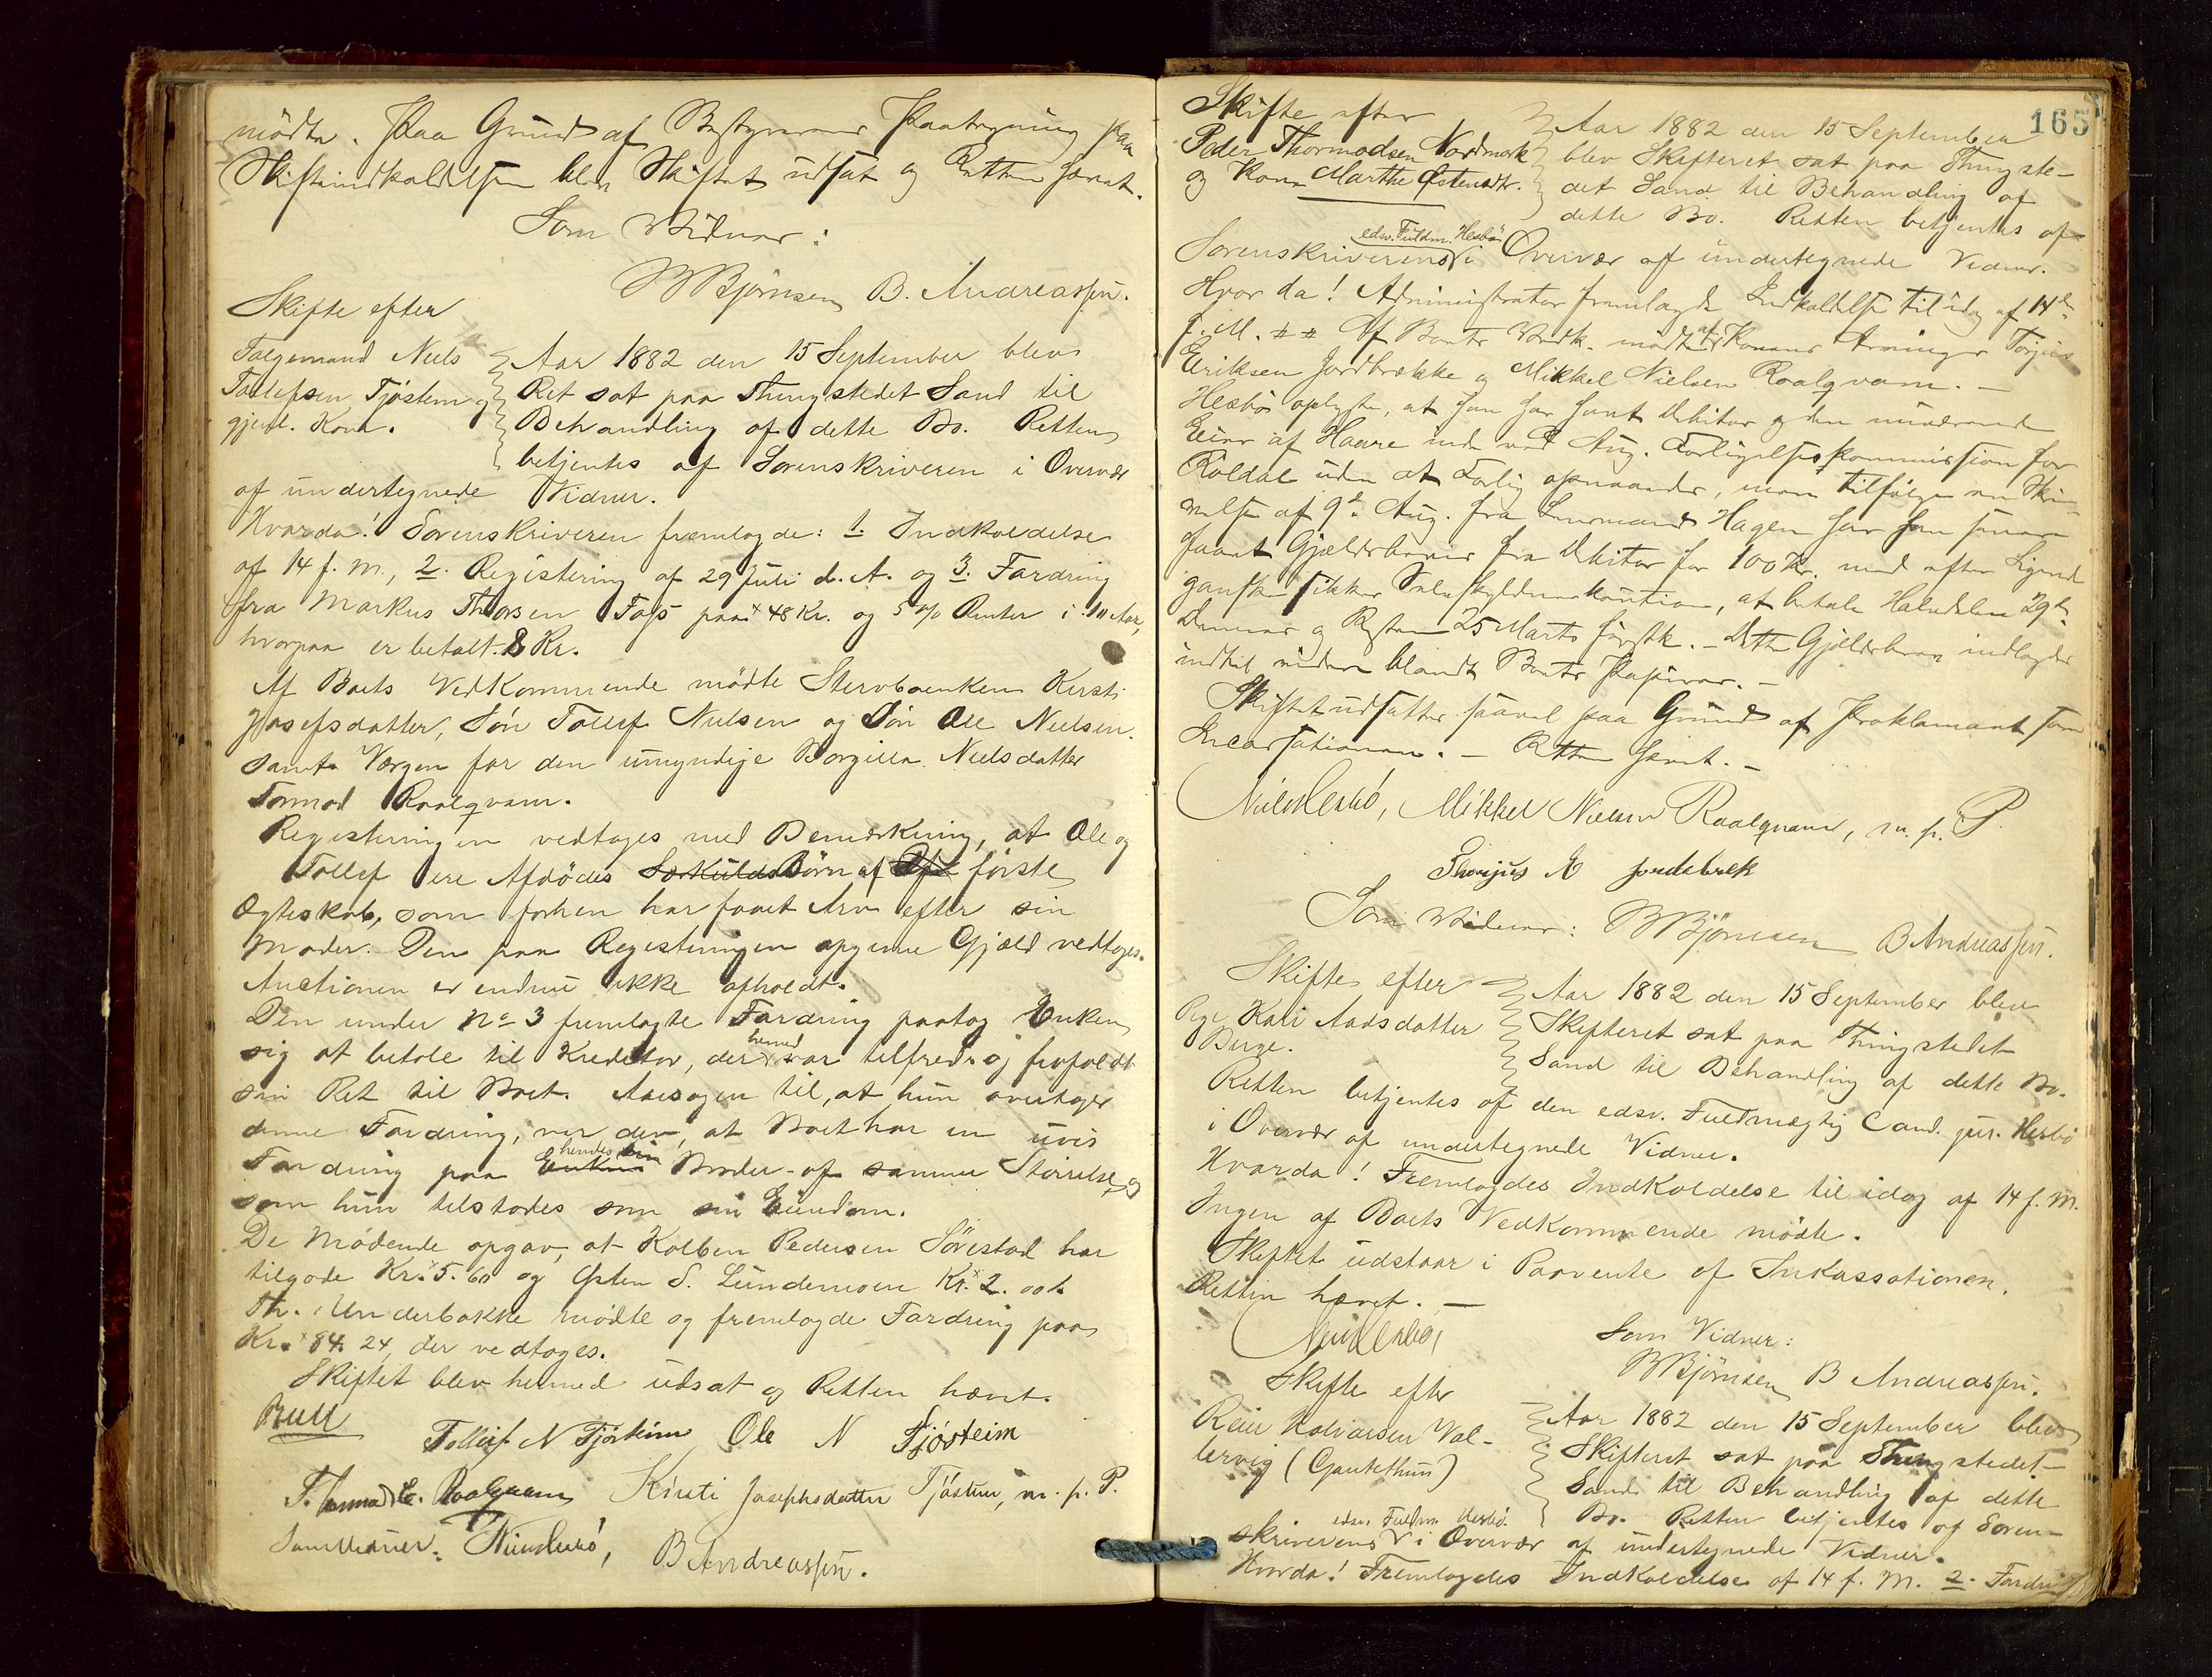 mödte. Paa Grund af Bestyrerens Paategning paa
Skifteindkaldelsen blev Skiftet udsat og Retten hævet.
Som Vidner:
Bjørnsen B. Andreassen.
Skifte efter
Folgemand Niels
Tollefsen Tjöstem og
gjenl. Kone.
Aar 1882 den 15 September blev
Ret sat paa Thingstedet Sand til
Behandling af dette Bo. Retten
betjentes af Sorenskriveren i Overvær
af undertegnede Vidner.
Hvorda! Sorenskriveren fremlagde: 1. Indkaldelse
af 14 f. M., 2. Registering af 29 Juli d. A. og 3. Fordring
fra Markus Thorsen Foss paa 48 Kr. og 5 % Renter i 10 Aar,
hvorpaa er betalt 8 Kr.
Af Boets Vedkommende mödte Stervboenken Kirsti
Josefsdatter, Sön Tollef Nielsen og Sön Ole Nielsen
samt Værgen for den umyndige Borgilla Nielsdatter
Tormod Roalqvam.
Registeringen vedtoges med Bemærkning, at Ole og
Tollef ere Afdödes Særkulds Börn af förste
Ægteskab, som forhen har faaet Arv efter sin
Moder. Den paa Registeringen opgivne Gjæld vedtoges.
Auctionen er endnu ikke afholdt.
Den under No 3 fremlagte Fordring paatog Enken
sig at betale til Kreditor, der hermed var tilfreds og frafaldt
sin Ret til Boet. Aarsagen til, at hun overtager
denne Fordring, var den, at Boet har en uvis
Fordring paa Enkens hendes Broder af samme Störrelse, og
som hun tilstodes som sin Eiendom.
De Mödende opgav, at Kolben Pedersen Sörestad har
tilgode Kr. 5.60 og Østen S. Lundemoen Kr. 2. 00.
Th. Underbakke mödte og fremlagde Fordring paa
Kr. 84. 24, der vedtoges.
Skiftet blev hermed udsat og Retten hævet.
Bull
Tollef N Tjösteim Ole N Tjösteim
Tormod E. Roalqvam Kirsti Josephsdatter Tjöstem, m. p. P.
Som Vidner: Niels Hesbö, B Andreassen.
165
Skifte efter
Peder Thormodsen Nordmork
og Kone Marthe Østensdtr.
Aar 1882 den 15 September
blev Skifteret sat paa Thingste-
det Sand til Behandling af
dette Bo. Retten betjentes af
Sorenskriverens edsv. Fuldm. Hesbö i Overvær af undertegnede Vidner.
Hvor da! Administrator fremlagde Indkaldelse til idag af 14de
f. M. Af Boets Vedk. mödte af Konens Arvinger Torjus
Eriksen Jordbrække og Mikkel Nielsen Roalqvam. —
Hesbö oplyste, at han har havt Debitor og den nuværende
Eier af Haare inde ved Aug. Forligelseskommission for
Röldal uden at Forlig opnaaedes, men tilfölge en Skri-
velse af 9de Aug. fra Lensmand Hagen har han senere
faaet Gjældsbrev fra Debitor for 100 Kr. med efter Sigende
ganske sikker Selvskyldnerkaution, at betale Halvdelen 29de
Dennes og Resten 25 Marts förstk. — Dette Gjældsbrev indlagdes
indtil videre blandt Boets Papirer. —
Skiftet udsattes saavel paa Grund af Proklamaet som
Incassationen. — Retten hævet. —
Niels Hesbö, Mikkel Nielsen Roalqvam, m. p. P.
Thorjus E Jordebrek
Som Vidner: Bjørnsen B Andreassen.
Skifte efter
Pige Kari Aadsdatter
Berge.
Aar 1882 den 15 September blev
Skifteret sat paa Thingstedet
Sand til Behandling af dette Bo.
Retten betjentes af den edsv. Fuldmægtig Cand. jur. Hesbö
i Overvær af undertegnede Vidner.
Hvorda! Fremlagdes Indkaldelse til idag af 14 f. M.
Ingen af Boets Vedkommende mödte.
Skiftet udstaar i Paavente af Inkassationen.
Retten hævet. —
Niels Hesbö,
Som Vidner:
Bjørnsen B Andreassen.
Skifte efter
Reier Halvarsen Val-
lervig (Gautethun)
Aar 1882 den 15 September blev
Skifteret sat paa Thingstedet
Sand til Behandling af dette
Bo. Retten betjentes af Soren-
skriverens edsv. Fuldm. Hesbö i Overvær af undertegnede Vidner.
Hvorda! Fremlagdes Indkaldelse af 14 f. M. 2. Fordring